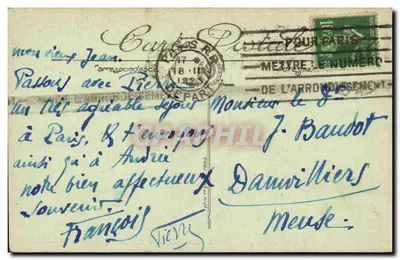 Carte Postale
PARIS R.P.
DEPART
POUR PARIS
METTRE LE NUMERO
DE L'ARRONDISSEMENT
Correspondance
mon vieux Jean.
Passons avec Pierre
un très agréable séjour
à Paris, & t'envoyons
ainsi qu'à Andrée
notre bien affectueux
souvenir.
François
Pierre
Monsieur le Dr
J. Baudot
Damvilliers
Meuse.